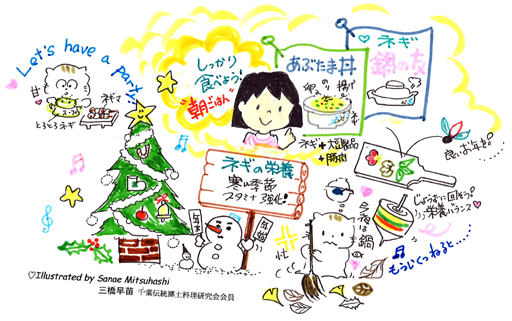 Let's have a party!!
甘
スープ
ネギマ
とろとろネギ
しっかり
食べよう!
"朝ごはん"
あぶたま丼
のり
卵
揚げ
ネギ
ネギ+大豆製品
+豚肉
ネギ
鍋の友
ネギの栄養
寒い季節
スタミナ強化!
年末
年始
忙
今夜は鍋
良いお年を!
じょうずに回そう!
栄養バランス♡
もういくつねると・・・・
♡Illustrated by Sanae Mitsuhashi
三橋早苗 千葉伝統郷土料理研究会会員